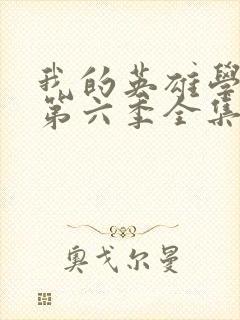 我的英雄學
第六季全集
奥戈尔曼